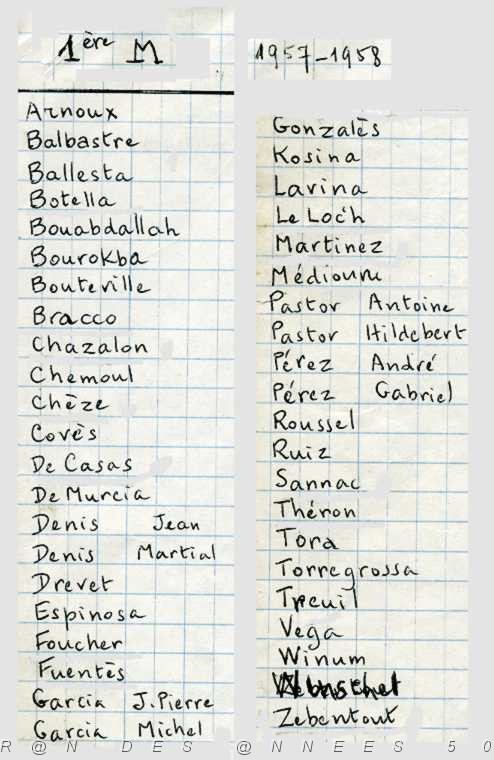 1ère M
1957-1958
Arnoux
Balbastre
Ballesta
Botella
Bouabdallah
Bourokba
Bouteville
Bracco
Chazalon
Chemoul
Chèze
Covès
De Casas
De Murcia
Denis Jean
Denis Martial
Drevet
Espinosa
Foucher
Fuentès
Garcia J.Pierre
Garcia Michel
Gonzalès
Kosina
Lavina
Le Loc'h
Martinez
Médioum
Pastor Antoine
Pastor Hildebert
Pérez André
Pérez Gabriel
Roussel
Ruiz
Sannac
Théron
Tora
Torregrossa
Treuil
Vega
Winum
Zebentout
R @ N D E S @ N N E E S 5 0